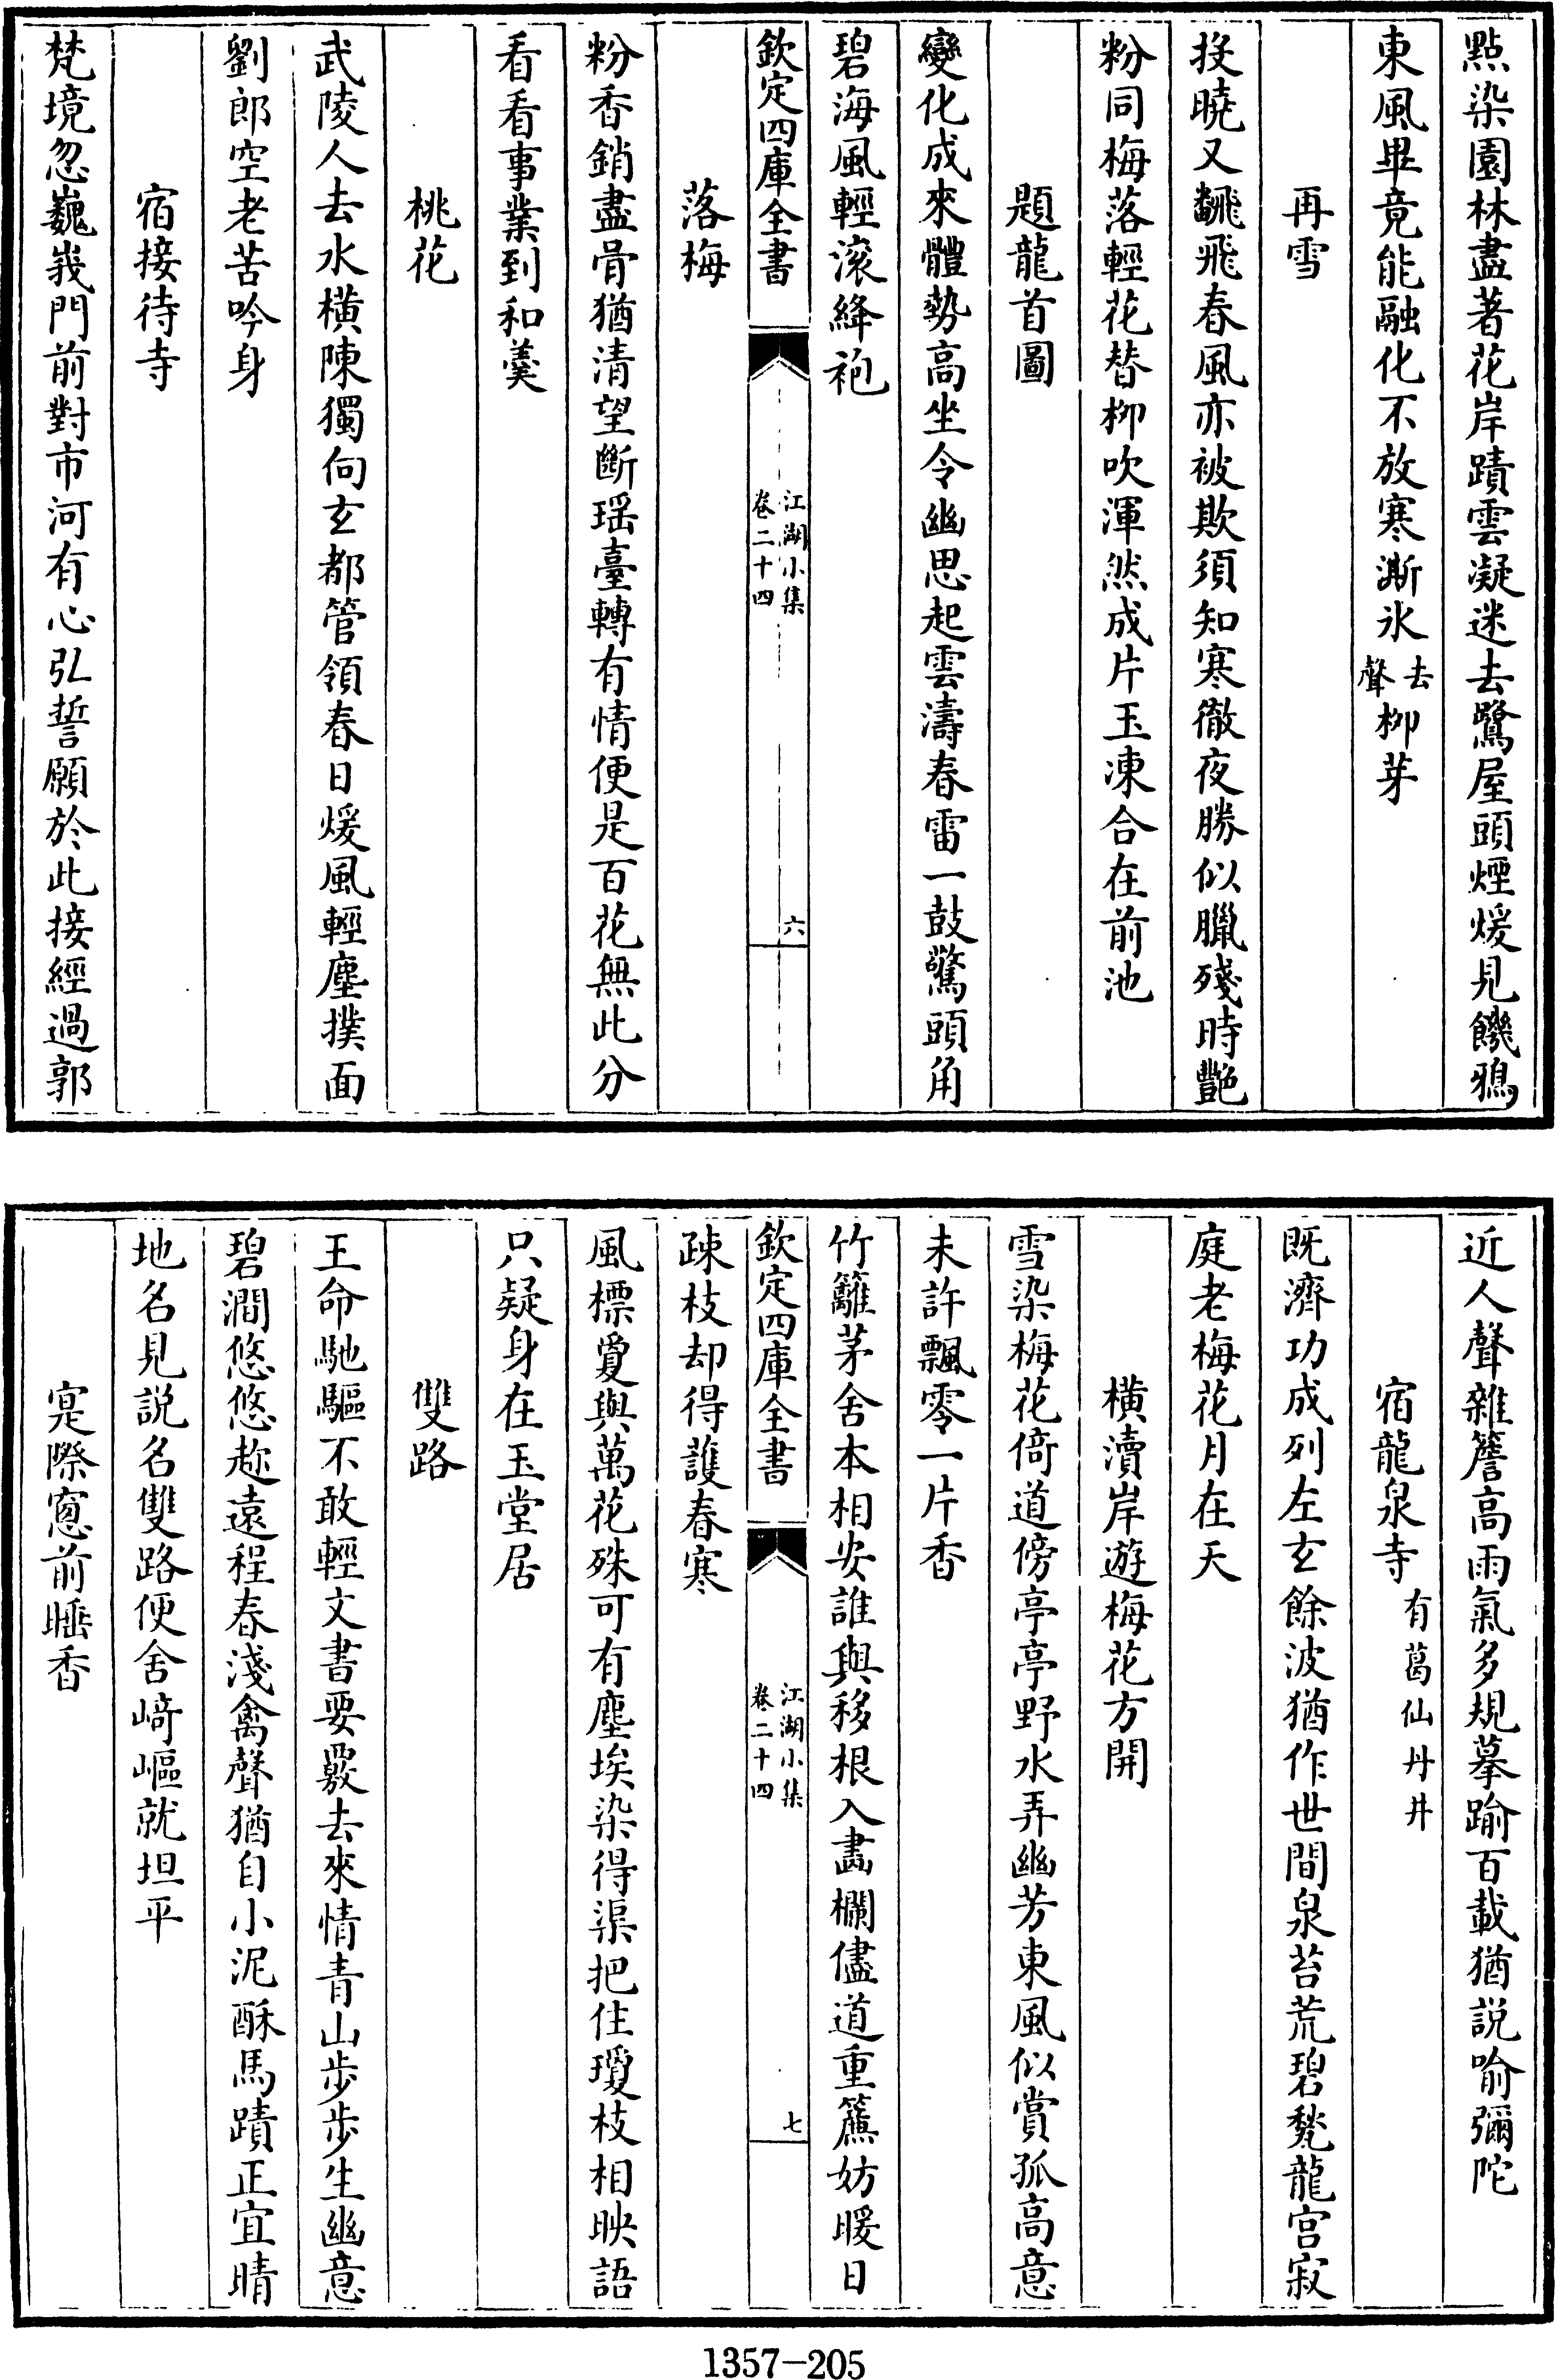 點染園林盡著花岸蹟雲凝迷去鷺屋頭煙煖見饑鴉
東風畢竟能融化不放寒澌氷去聲柳芽
再雪
投曉又飜飛春風亦被欺須知寒徹夜勝似臘殘時艷
粉同梅落輕花替柳吹渾然成片玉凍合在前池
題龍首圖
變化成來體勢高坐令幽思起雲濤春雷一鼓驚頭角
碧海風輕滚絳袍
欽定四庫全書
江湖小集
卷二十四
六
落梅
粉香銷盡骨猶清望斷瑶臺轉有情便是百花無此分
看看事業到和羹
桃花
武陵人去水横陳獨向玄都管領春日煖風輕塵撲面
劉郎空老苦吟身
宿接待寺
梵境忽巍峩門前對市河有心弘誓願於此接經過郭
近人聲雜簷高雨氣多規摹踰百載猶説喻彌陀
宿龍泉寺有葛仙丹井
既濟功成列左玄餘波猶作世間泉苔荒碧甃龍宫寂
庭老梅花月在天
横瀆岸遊梅花方開
雪染梅花倚道傍亭亭野水弄幽芳東風似賞孤高意
未許飄零一片香
竹籬茅舍本相安誰與移根入畵欄儘道重簾妨暖日
欽定四庫全書
江湖小集
卷二十四
七
疎枝却得護春寒
風標夐與萬花殊可有塵埃染得渠把住瓊枝相映語
只疑身在玉堂居
雙路
王命馳驅不敢輕文書要覈去來情青山步步生幽意
碧澗悠悠趂遠程春淺禽聲猶自小泥酥馬蹟正宜晴
地名見説名雙路便舍﨑嶇就坦平
寔際窻前睡香
1357-205